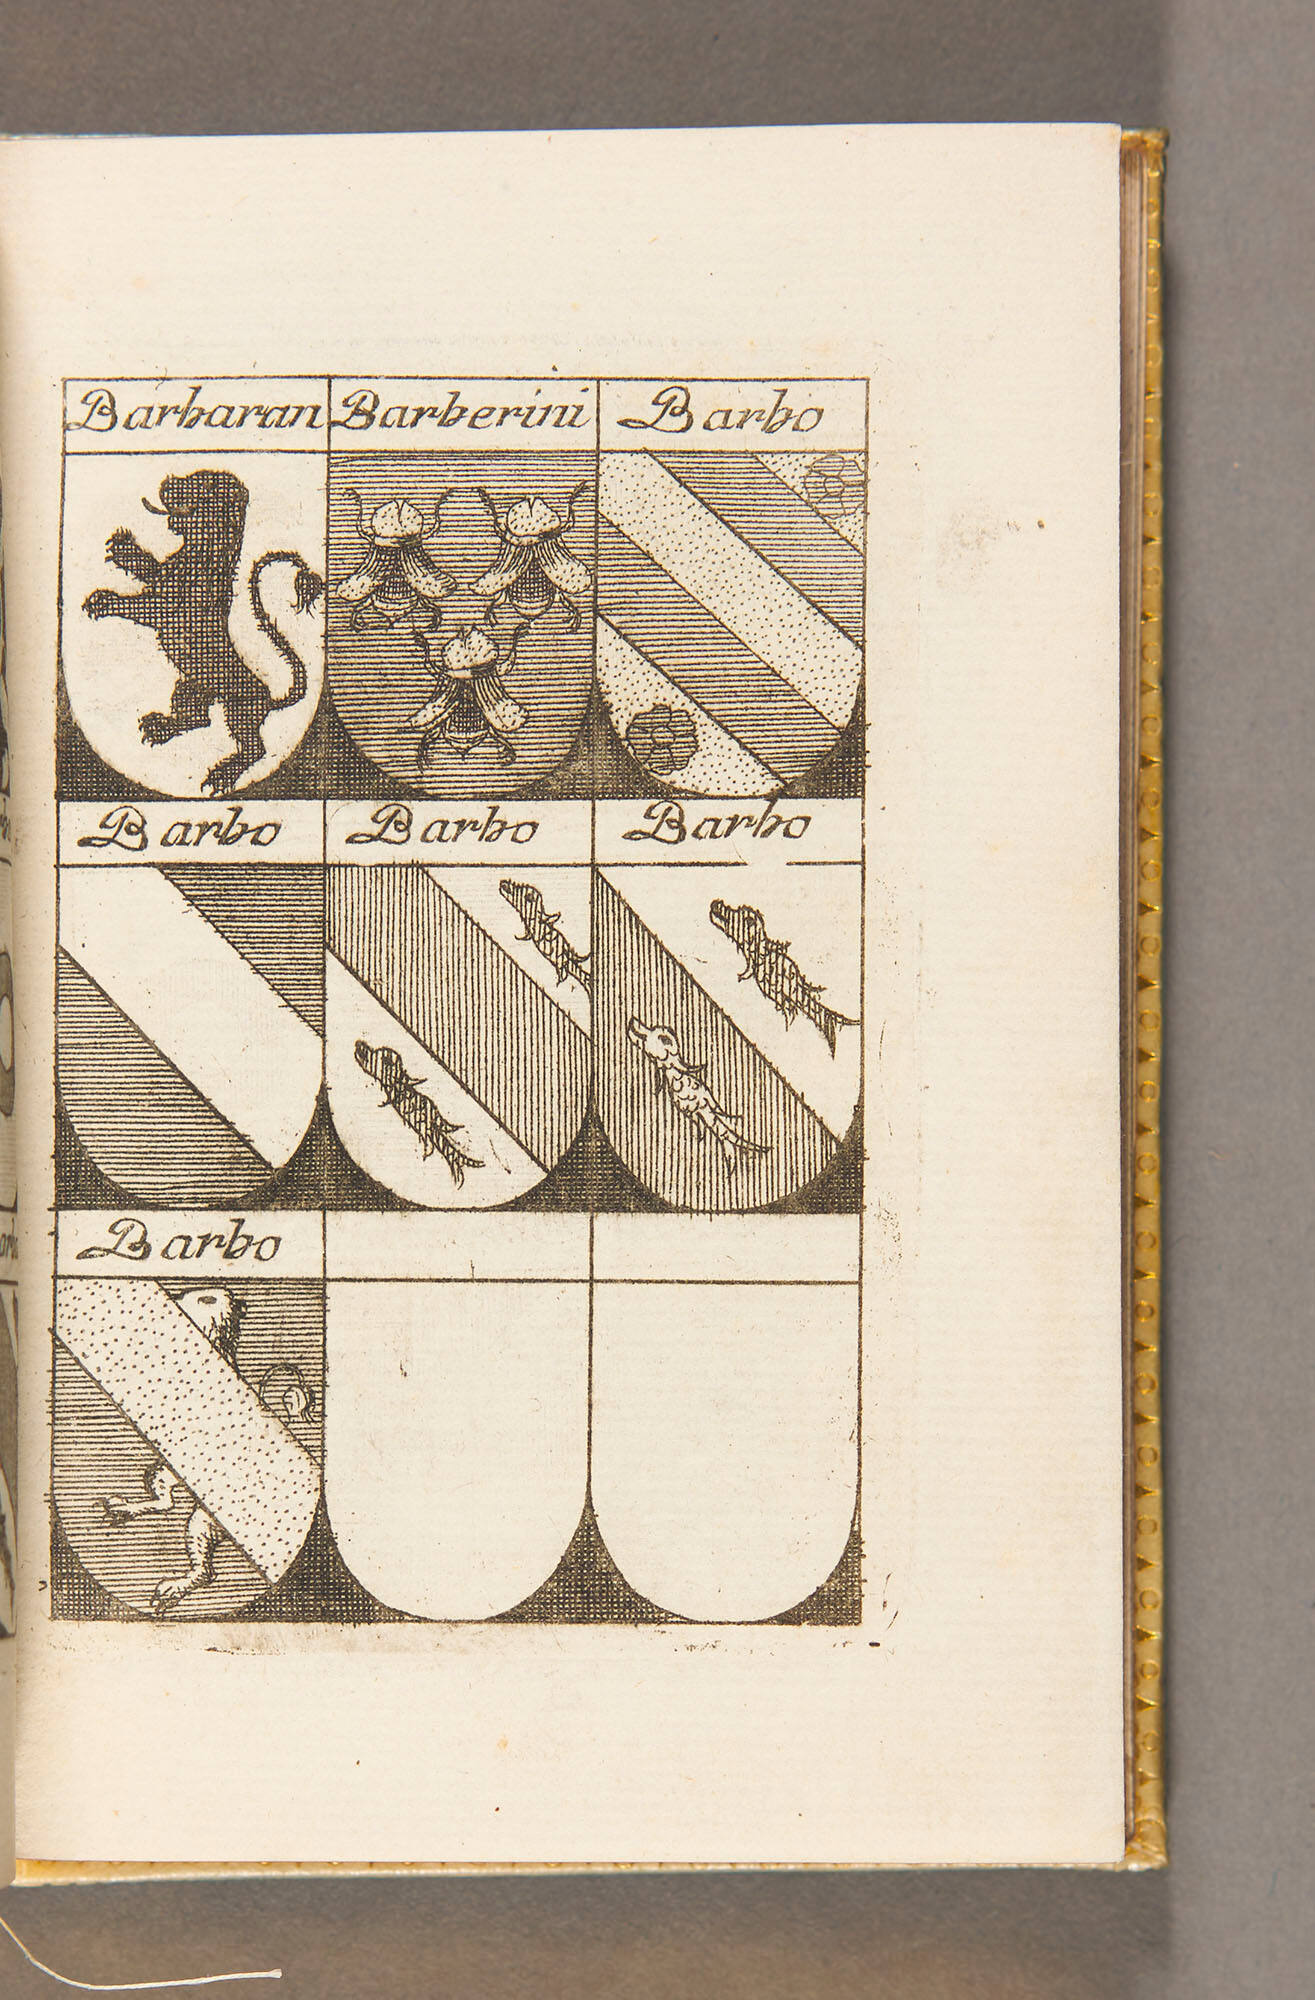 Barbaran Barberini Barbo
Barbo Barbo Barbo
Barbo